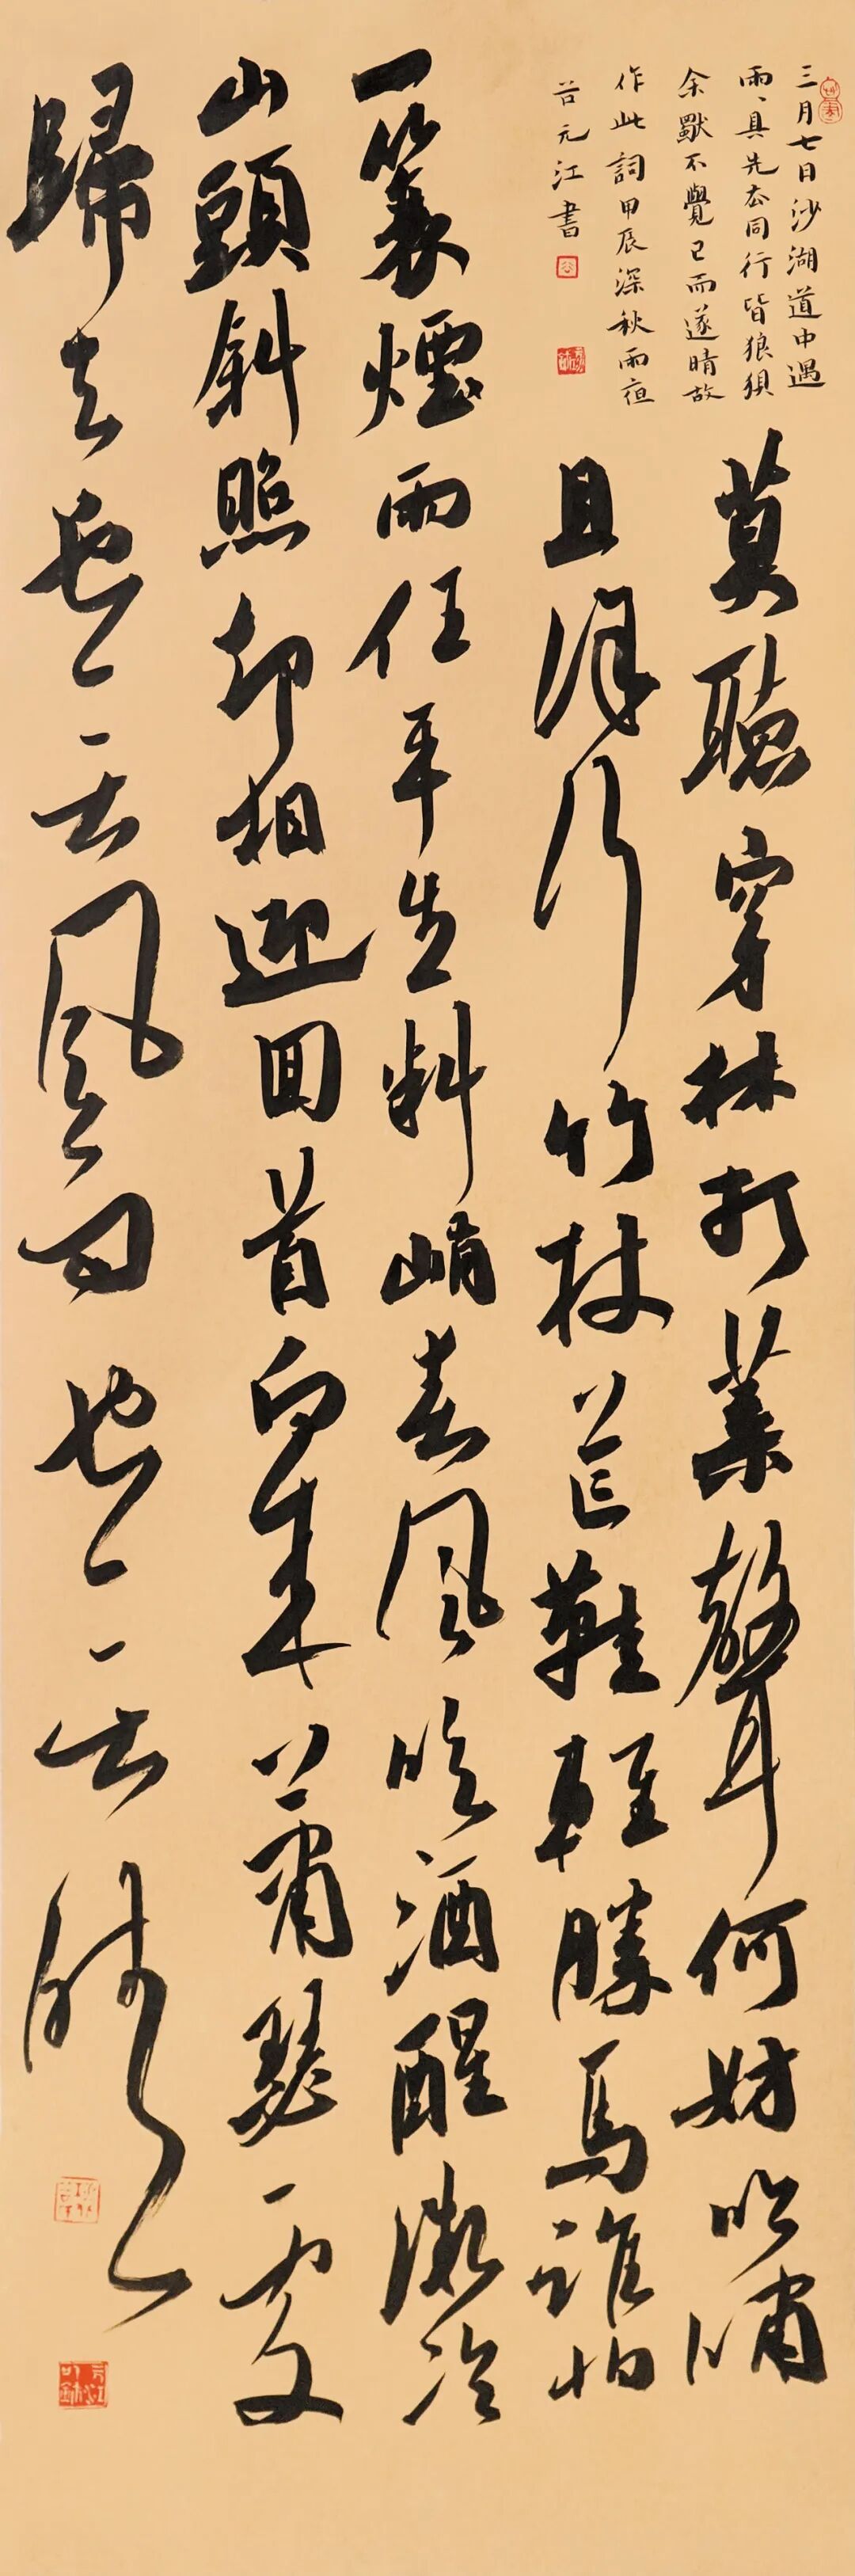 三月七日沙湖道中遇
雨、具先去同行皆狼狽
余獨不覺已而遂晴故
作此詞甲辰深秋雨夜
谷元江書
莫聽穿林打葉聲何妨吟嘯
且徐行竹杖芒鞋輕勝馬誰怕
一蓑煙雨任平生料峭春風吹酒醒微冷
山頭斜照却相迎回首向來蕭瑟處
歸去也無風雨也無晴